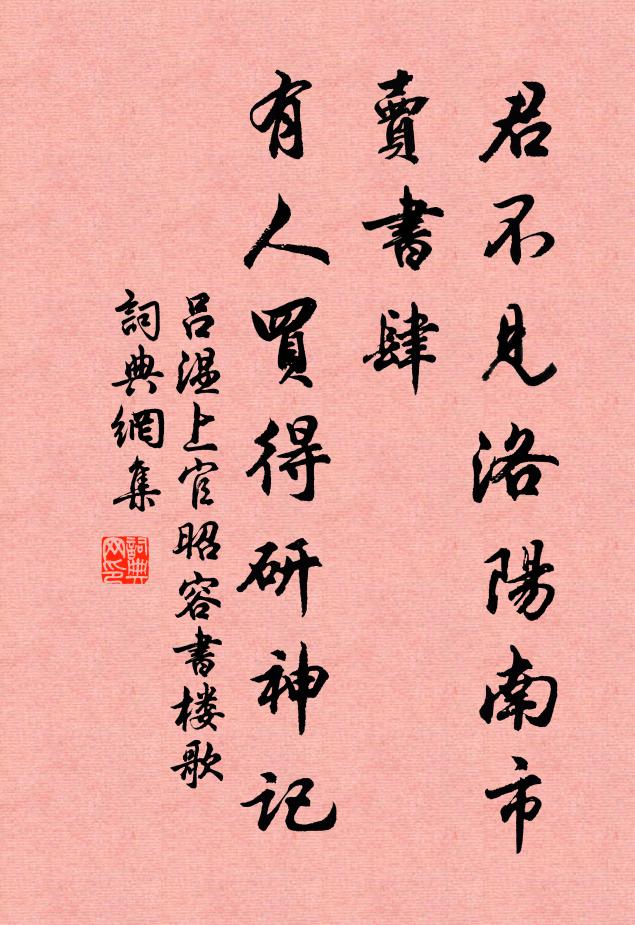 君不見洛陽南市
賣書肆
有人買得研神記
吕温上官昭容書楼歌
詞典網集
詞典
网印